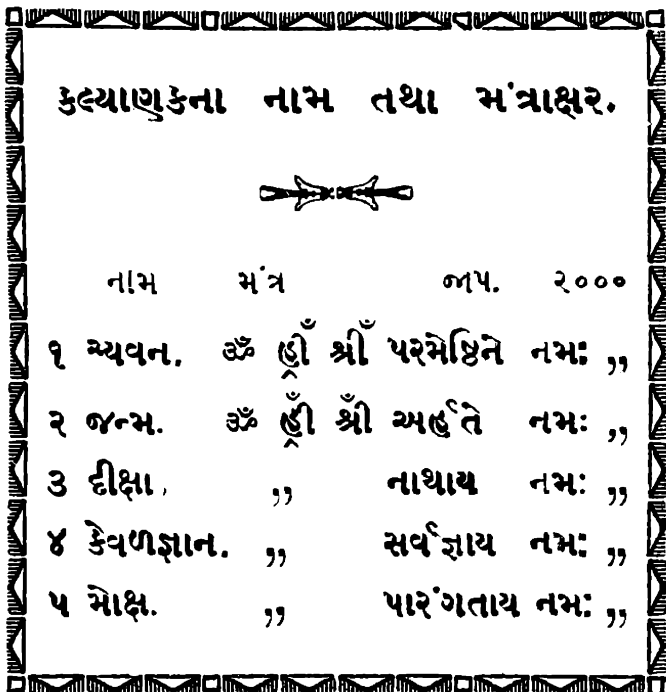 કલ્યાણકના નામ તથા મંત્રાક્ષર.
નામ મંત્ર જાપ. ૨૦૦૦
૧ ચ્યવન. ૐ હ્રીઁ શ્રીઁ પરમેષ્ઠિને નમઃ ,,
૨ જન્મ. ૐ હ્રીઁ શ્રીઁ અર્હતે નમઃ ,,
૩ દીક્ષા. ,, નાથાય નમઃ ,,
૪ કેવળજ્ઞાન. ,, સર્વજ્ઞાય નમઃ ,,
૫ મોક્ષ. ,, પારંગતાય નમઃ ,,